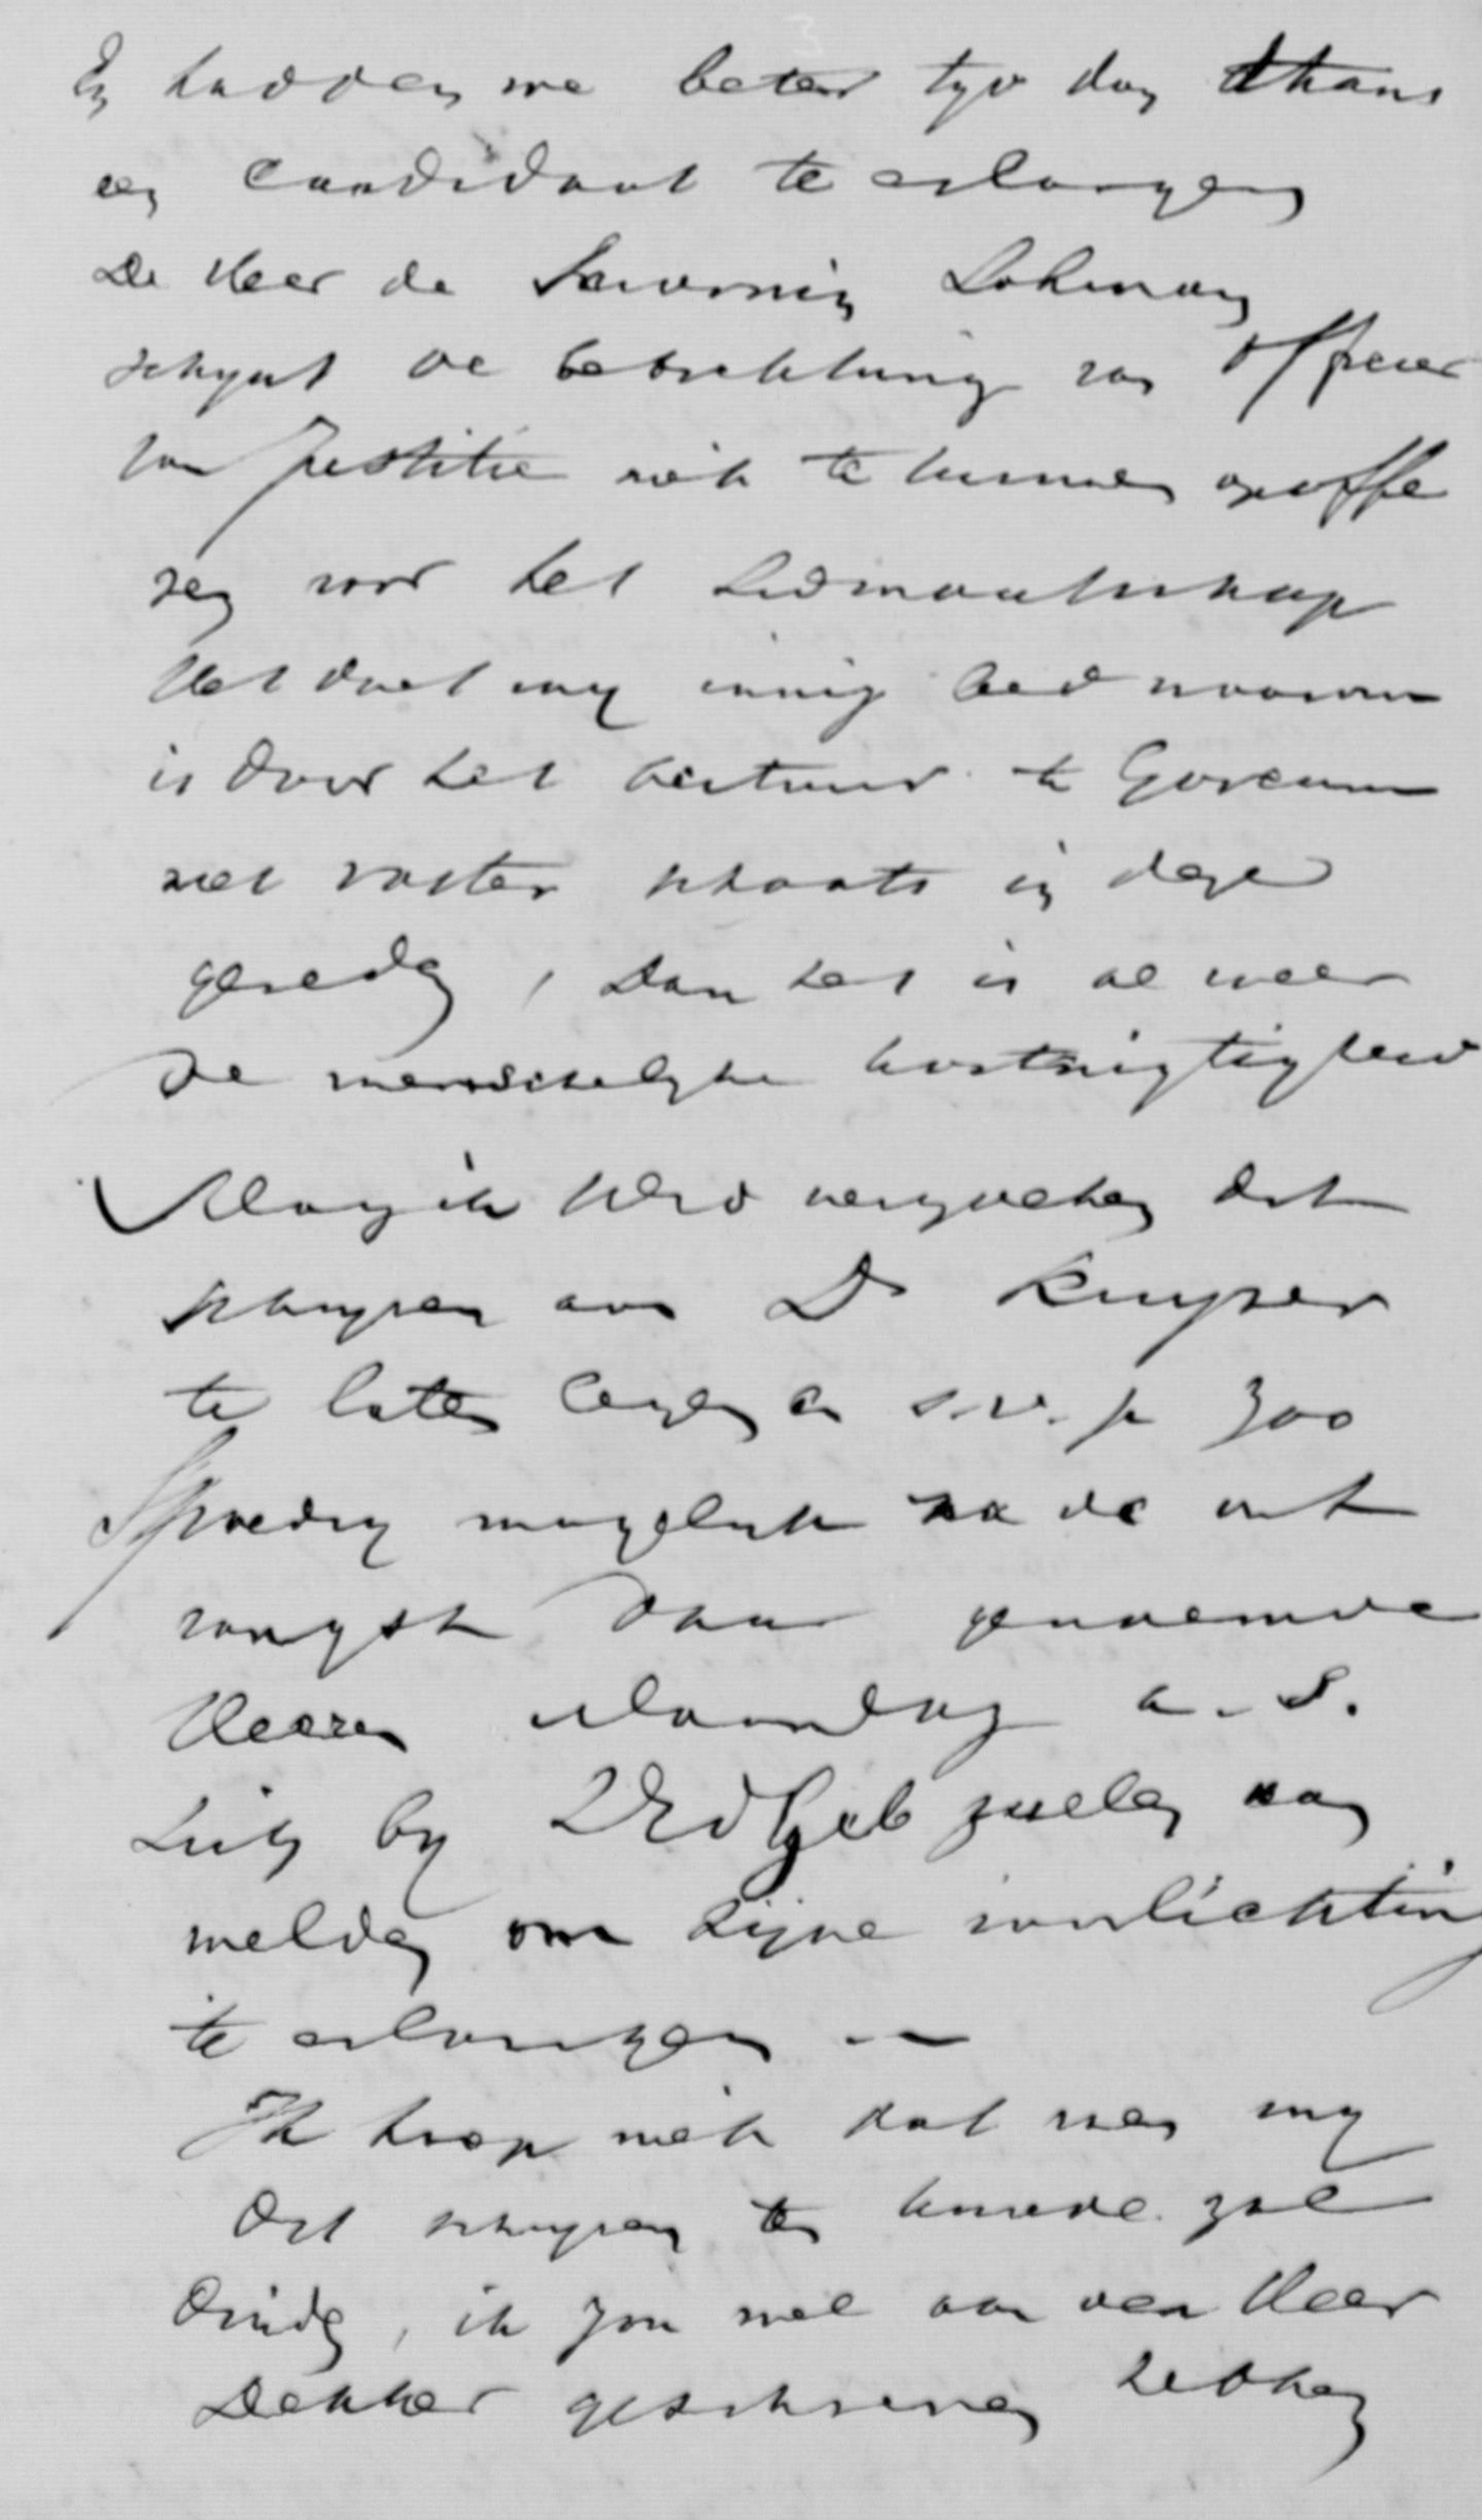 En hadden we beter tyd dan thans
een Candidaat te erlangen
De Heer de Savornin Lohman
schynt de betrekking van Officier
van Justitie niet te kunnen opoffe
ren voor het Lidmaatschap
Het doet my innig leed waarom
is door het bestuur te Gorcum
niet vaster schaats in deze
gereden, Dan het is al weer
de menschelyke kortzigtigheid
Mag ik UEd verzoeken dit
schryven aan Dr Kuyper
te laten lezen en s.v.p zoo
Spoedig mogelyk na de ont
vangst daar genoemde
Heeren Maandag a.s.
zich by UEdGeb zullen aan
melden om zijne voorlichting
te erlangen —
Ik hoop niet dat men my
dit schryven ten kwade zal
duiden, ik zou wel aan den Heer
Dekker geschreven hebben